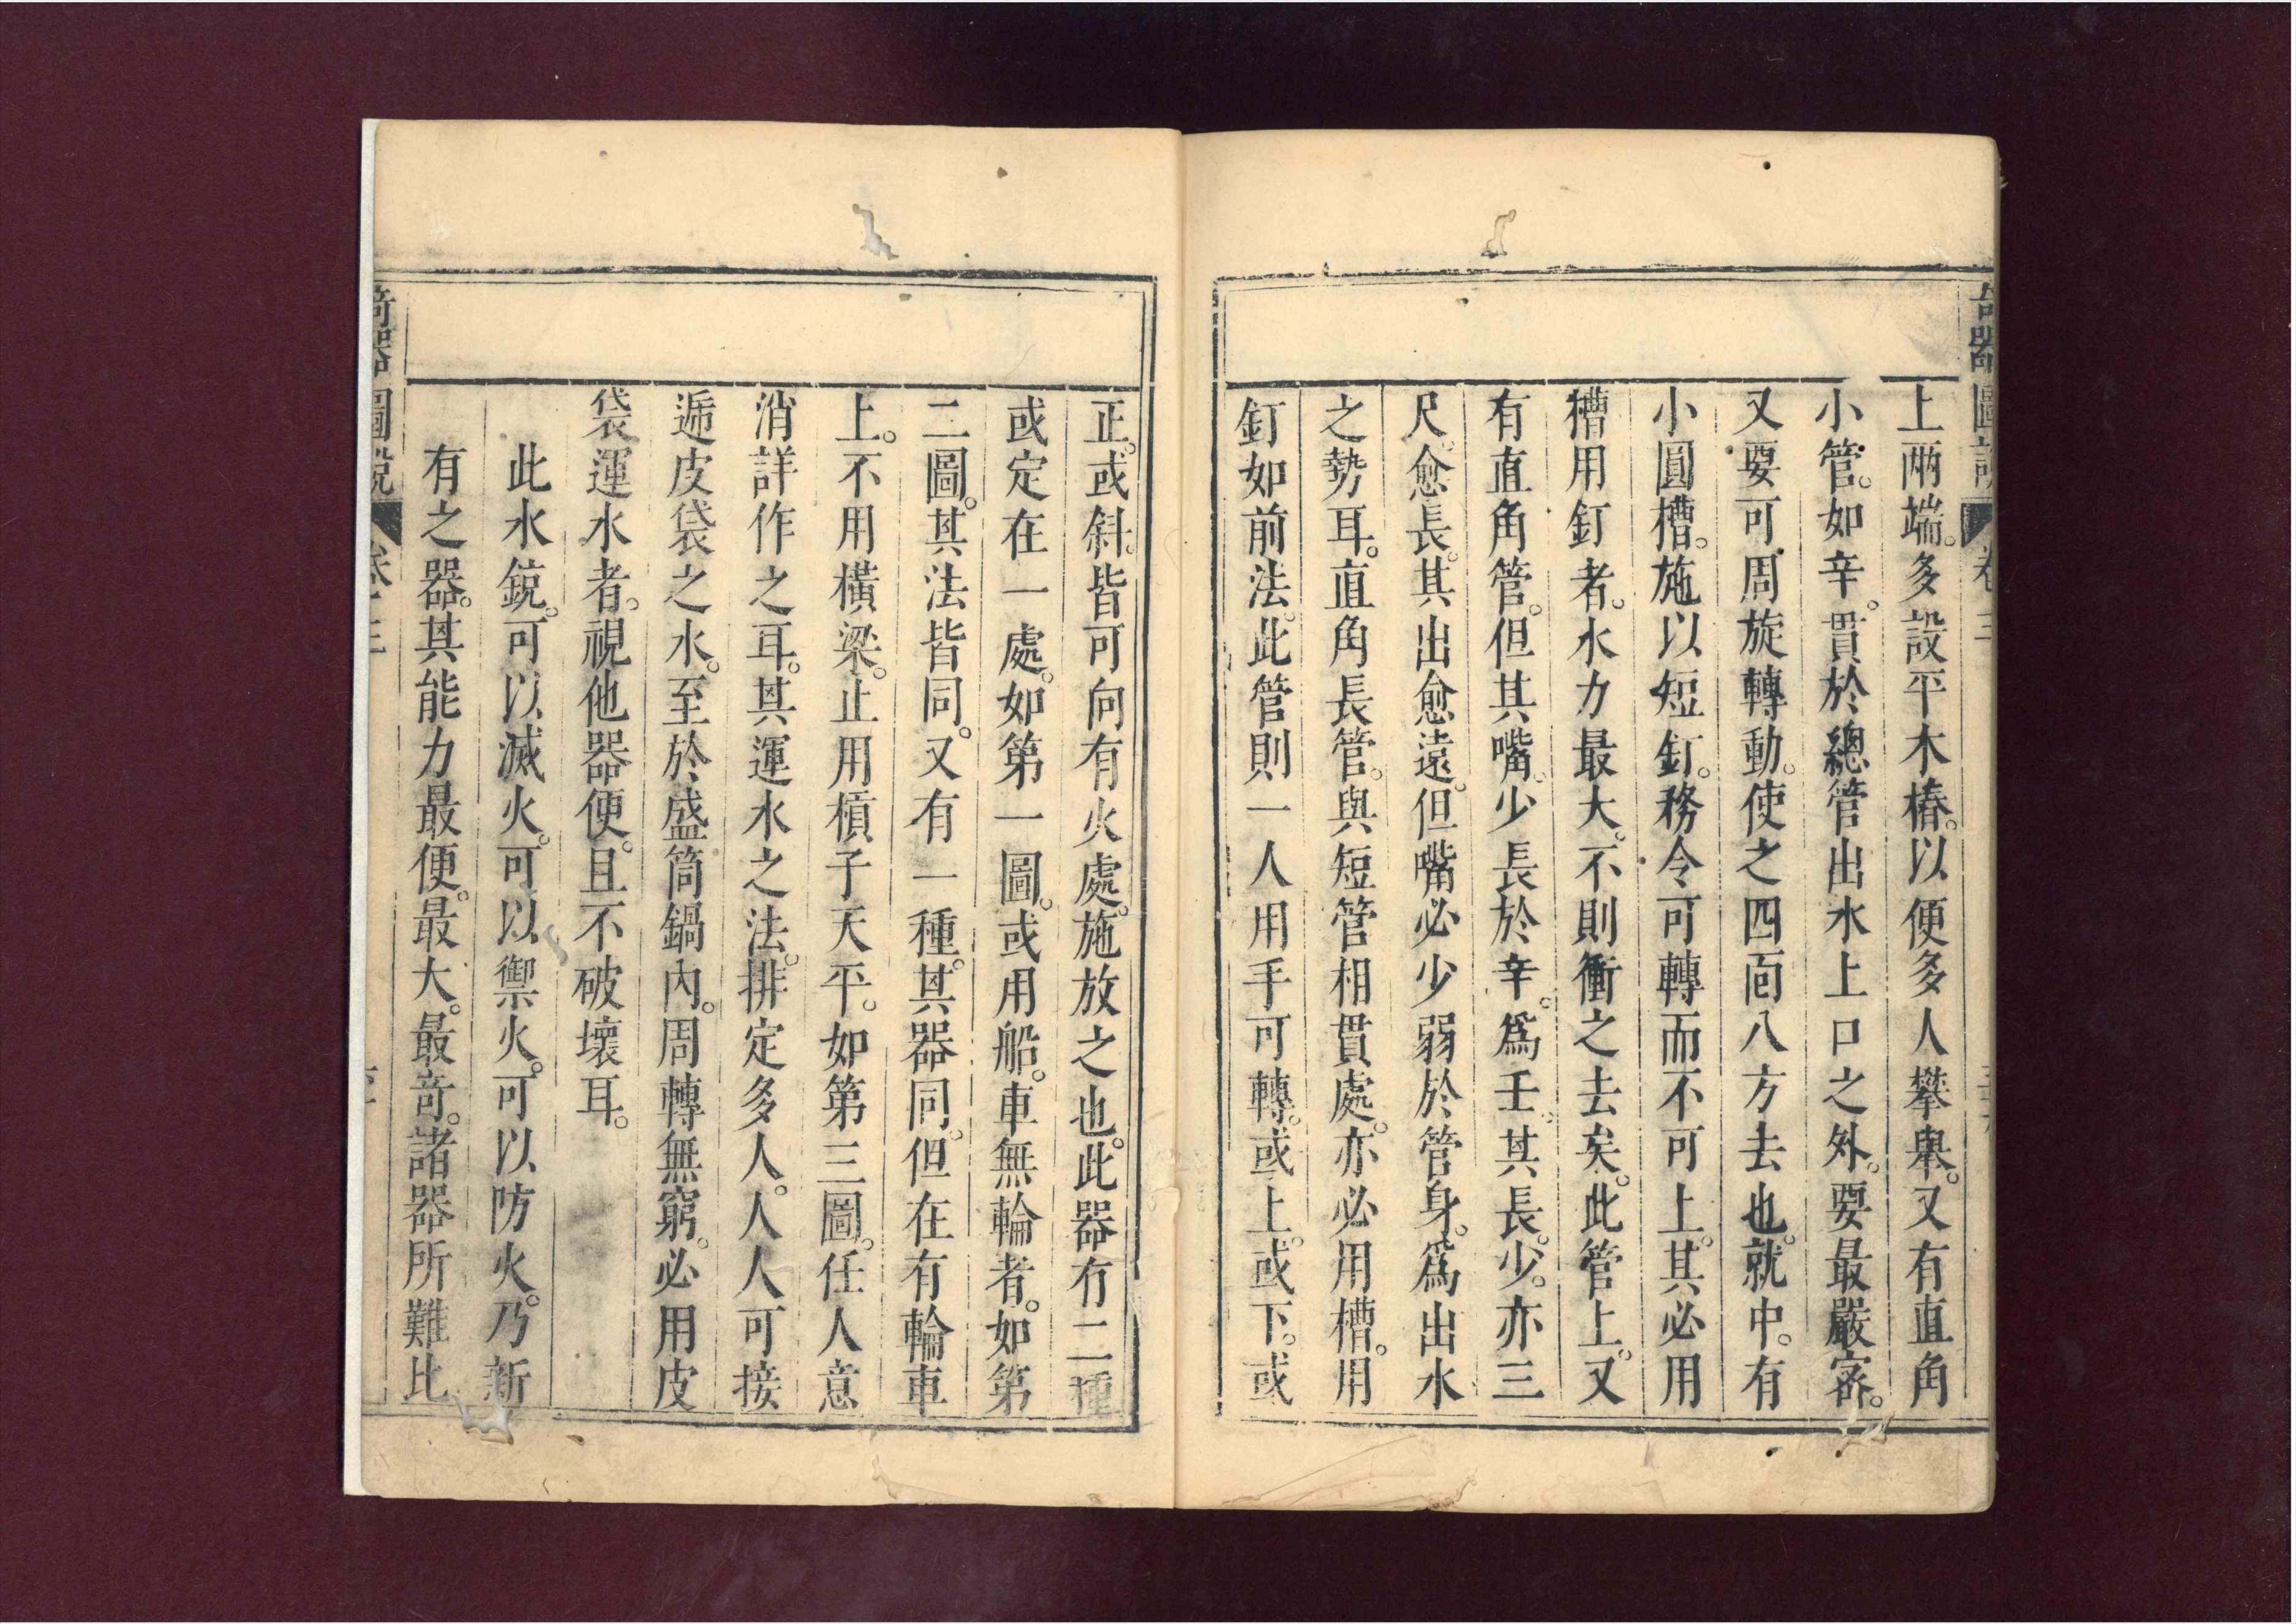 奇器圖說 卷三
上兩端。多設平木樁。以便多人攀舉。又有直角
小管。如辛。貫於總管出水上口之外。要最嚴密。
又要可周旋轉動。使之四面八方去也。就中。有
小圓槽。施以短釘。務令可轉而不可上。其必用
槽用釘者。水力最大。不則衝之去矣。此管上。又
有直角管。但其嘴。少長於辛。爲壬。其長。少。亦三
尺。愈長。其出愈遠。但嘴必少弱於管身。爲出水
之勢耳。直角長管。與短管相貫處。亦必用槽。用
釘如前法。此管則一人用手可轉。或上。或下。或
正。或斜。皆可向有火處。施放之也。此器有二種
或定在一處。如第一圖。或用船。車無輪者。如第
二圖。其法皆同。又有一種。其器同。但在有輪車
上。不用橫梁。止用槓子天平。如第三圖。任人意
消詳作之耳。其運水之法。排定多人。人人可接
遞皮袋之水。至於盛筒鍋內。周轉無窮。必用皮
袋運水者。視他器便。且不破壞耳。
此水銃。可以滅火。可以禦火。可以防火。乃新
有之器。其能力最便。最大。最奇。諸器所難比
奇器圖說 卷三